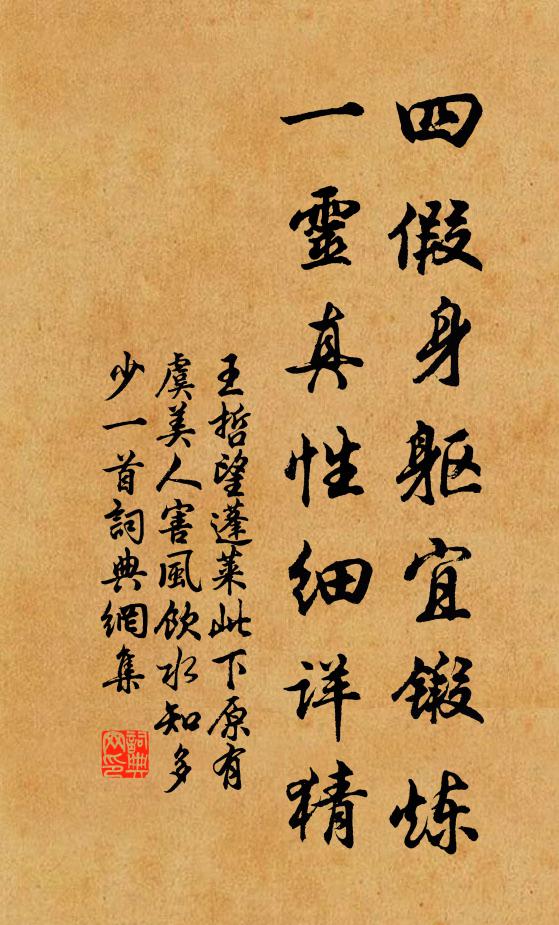 四假身躯宜锻炼
一靈真性细详猜
王哲望蓬莱此下原有
虞美人害風飲水知多
少一首詞典網集
詞典網印